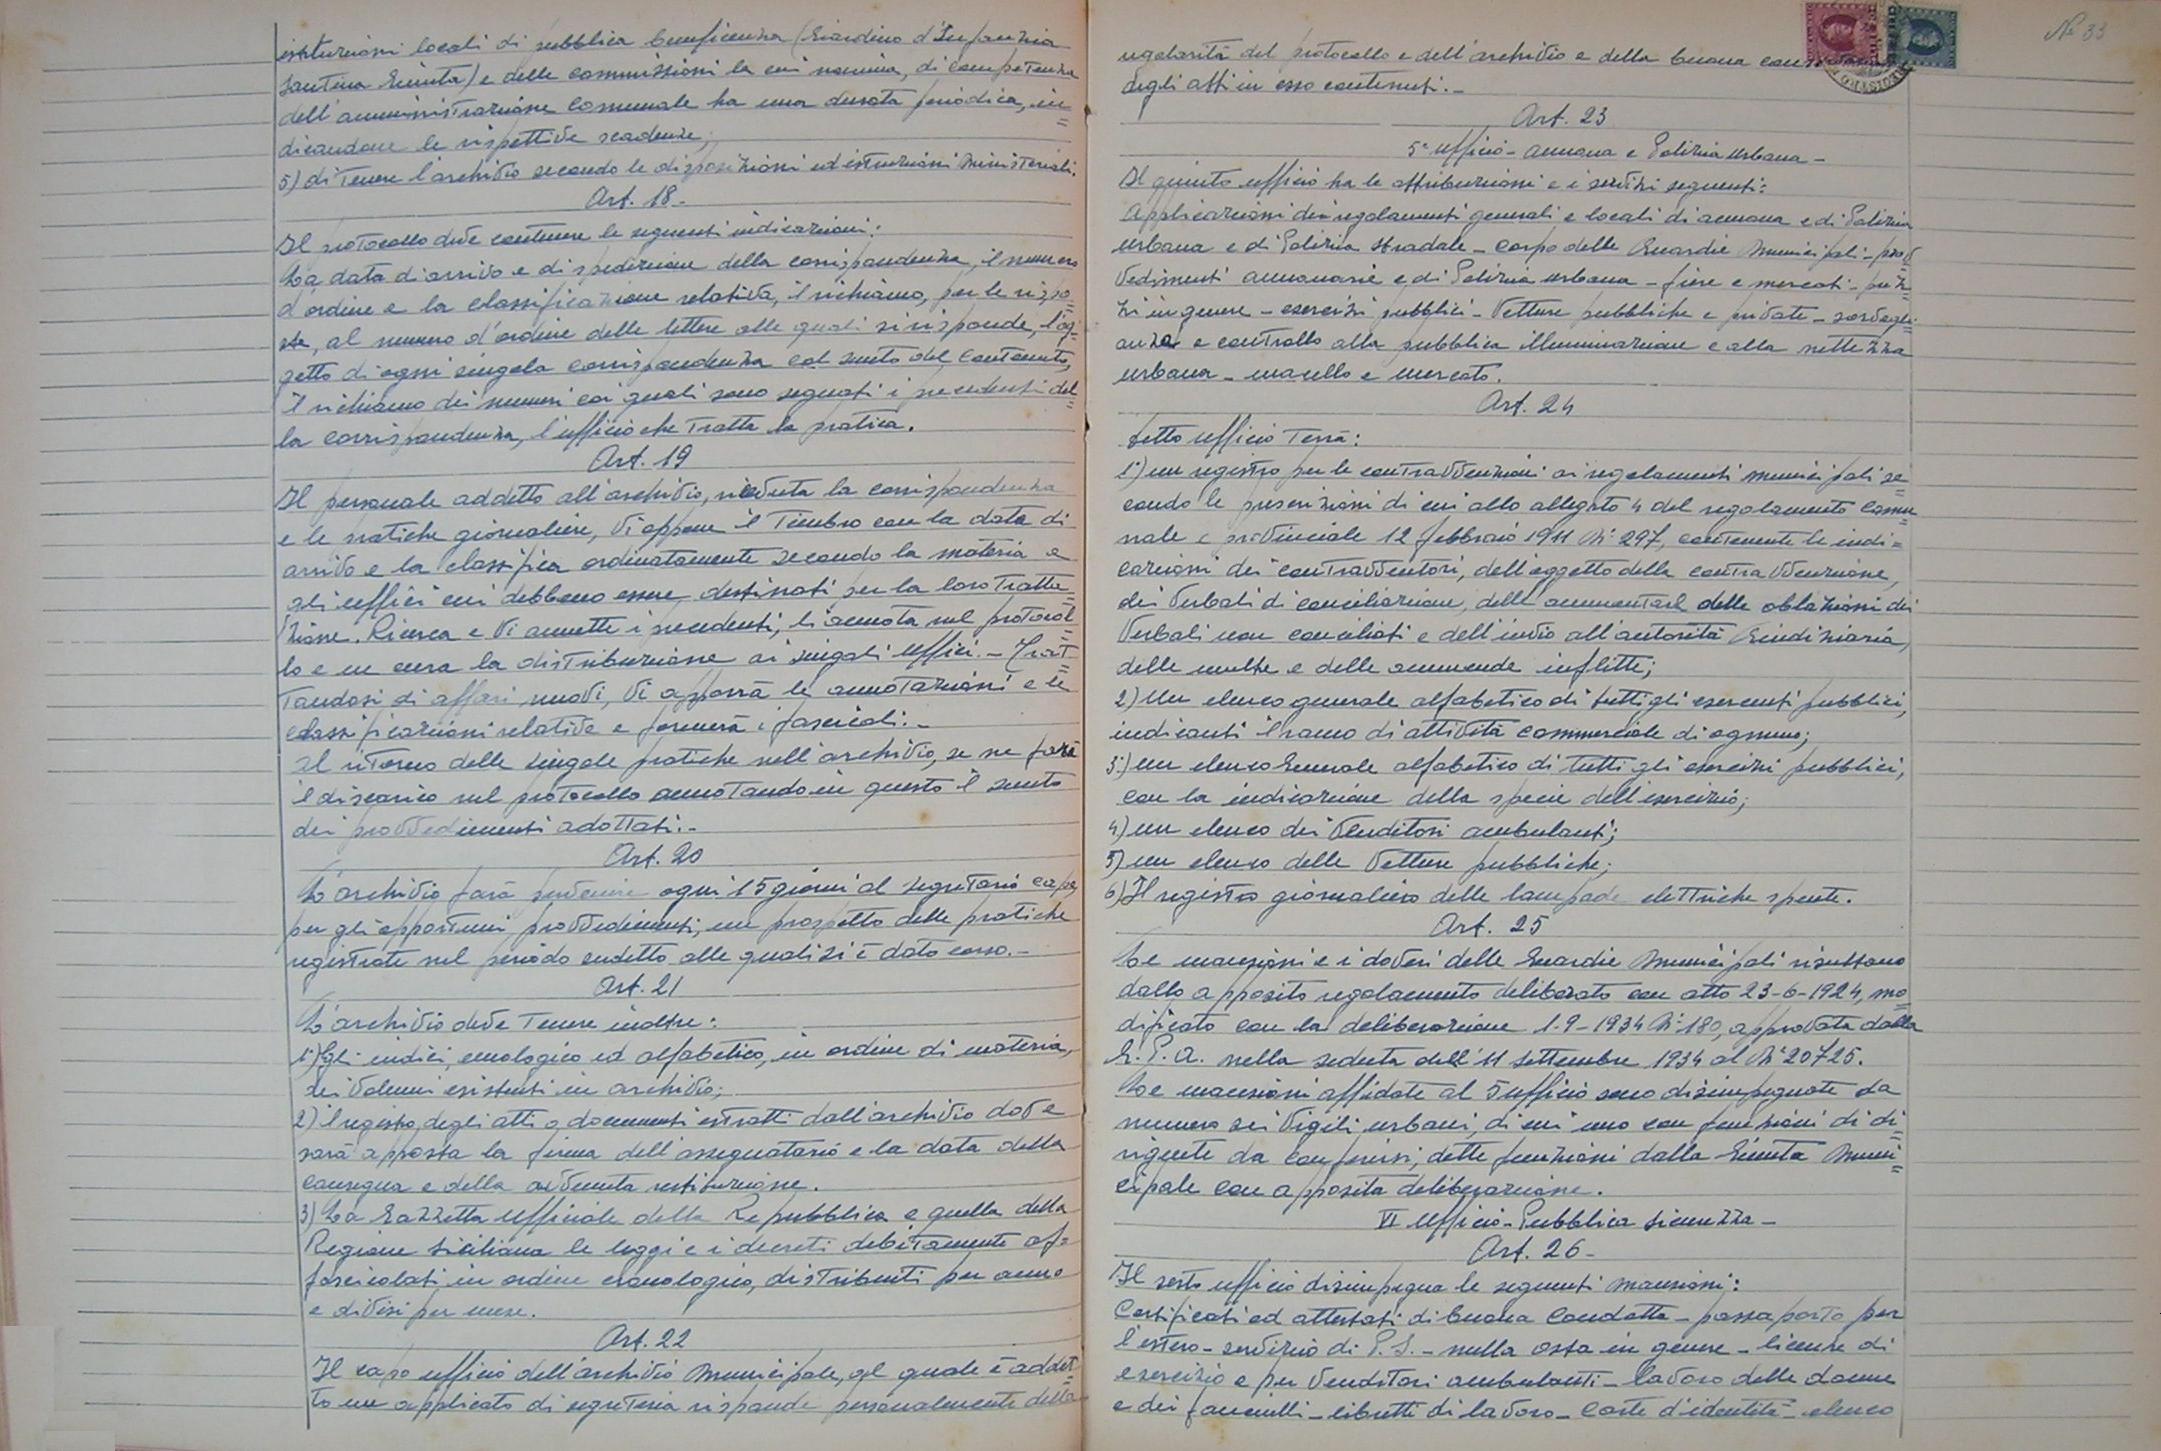 istituzioni locali di pubblica beneficenza (Giardino d'Infanzia
Santina Giunta) e delle commissioni la cui nomina, di competenza
dell'amministrazione Comunale ha una durata periodica, in=
dicandone le rispettive scadenze;
5) di Tenere l'archivio secondo le disposizioni ed istruzioni Ministeriali.
Art. 18.-
Il protocollo deve contenere le seguenti indicazioni:
La data d'arrivo e di spedizione della corrispondenza, il numero
d'ordine e la classificazione relativa, il richiamo, per le rispo=
ste, al numero d'ordine delle lettere alle quali si risponde, l'og=
getto di ogni singola corrispondenza col sunto del contenuto,
il richiamo dei numeri coi quali sono segnati i precedenti del=
la corrispondenza, l'ufficio che Tratta la pratica.
Art. 19
Il personale addetto all'archivio, ricevuta la corrispondenza
e le pratiche giornaliere, vi appone il Timbro con la data di
arrivo e la classifica ordinatamente secondo la materia e
gli uffici cui debbono essere destinati per la loro Tratta=
zione. Ricerca e vi annette i precedenti, li annota nel protocol=
lo e ne cura la distribuzione ai singoli uffici.- Trat=
Tandosi di affari nuovi, vi apporrà le annotazioni e le
classificazioni relative e formerà i fascicoli.-
Al ritorno delle singole pratiche nell'archivio, se ne farà
il discarico sul protocollo annotando in questo il sunto
dei provvedimenti adottati.-
Art. 20
L'archivio farà pervenire ogni 15 giorni al segretario capo,
per gli opportuni provvedimenti, un prospetto delle pratiche
registrate nel periodo sudetto alle quali si è dato corso.-
Art. 21
L'archivio deve Tenere inoltre:
1°) Gli indici, cronologico ed alfabetico, in ordine di materia,
dei volumi esistenti in archivio;
2) il registro degli atti o documenti estratti dall'archivio dove
sarà apposta la firma dell'assegnatario e la data della
consegna e della avvenuta restituzione.
3) La Gazzetta Ufficiale della Repubblica e quella della
Regione Siciliana le leggi e i decreti debitamente af=
fascicolati in ordine cronologico, distribuiti per anno
e divisi per mese.
Art. 22
Il capo ufficio dell'archivio Municipale, al quale è addet=
to un applicato di segreteria risponde personalmente della
N° 33
regolarità del protocollo e dell'archivio e della buona
degli atti in esso contenuti.-
Art. 23
5° ufficio - annona e Polizia Urbana -
Il quinto ufficio ha le attribuzioni e i servizi seguenti:
Applicazioni dei regolamenti generali e locali di annona e di Polizia
Urbana e di Polizia Stradale - corpo delle Guardie Municipali - prov=
vedimenti annonarii e di Polizia Urbana - fiere e mercati - prez=
zi in genere - esercizi pubblici - Vetture pubbliche e private - sorvegli=
anza e controllo alla pubblica illuminazione e alla nettezza
urbana - macello e mercato.
Art. 24
Detto ufficio Terrà:
1°) un registro per le contravvenzioni ai regolamenti municipali se=
condo le prescrizioni di cui allo allegato 4 del regolamento Comu=
nale e provinciale 12 febbraio 1911 N° 297, contenente le indi=
cazioni dei contravventori, dell'oggetto della contravvenzione,
dei Verbali di conciliazione, dell'ammontare delle oblazioni dei
Verbali non conciliati e dell'invio all'autorità Giudiziaria,
delle multe e delle ammende inflitte;
2) Un elenco generale alfabetico di tutti gli esercenti pubblici,
indicanti il ramo di attività commerciale di ognuno;
3°) un elenco Generale alfabetico di tutti gli esercizi pubblici,
con la indicazione della specie dell'esercizio;
4) un elenco dei Venditori ambulanti;
5) un elenco delle Vetture pubbliche;
6) Il registro giornaliero delle lampade elettriche spente.
Art. 25
Le mansioni e i doveri delle Guardie Municipali risultano
dallo apposito regolamento deliberato con atto 23-6-1924, mo=
dificato con la deliberazione 1-9-1934 N° 180, approvata dalla
G. P. A. nella seduta dell'11 settembre 1934 al N° 20725.
Le mansioni affidate al 5 ufficio sono disimpegnate da
numero sei Vigili urbani, di cui uno con funzioni di di=
rigente da conferirsi, dette funzioni dalla Giunta Muni=
cipale con apposita deliberazione.
VI Ufficio - Pubblica Sicurezza -
Art. 26-
Il sesto ufficio disimpegna le seguenti mansioni:
Certificati ed attestati di buona condotta - passaporto per
l'estero - servizio di P. S. - nulla osta in genere - licenze di
esercizio e per Venditori ambulanti - lavoro delle donne
e dei fanciulli - libretti di lavoro - carte d'identità - elenco